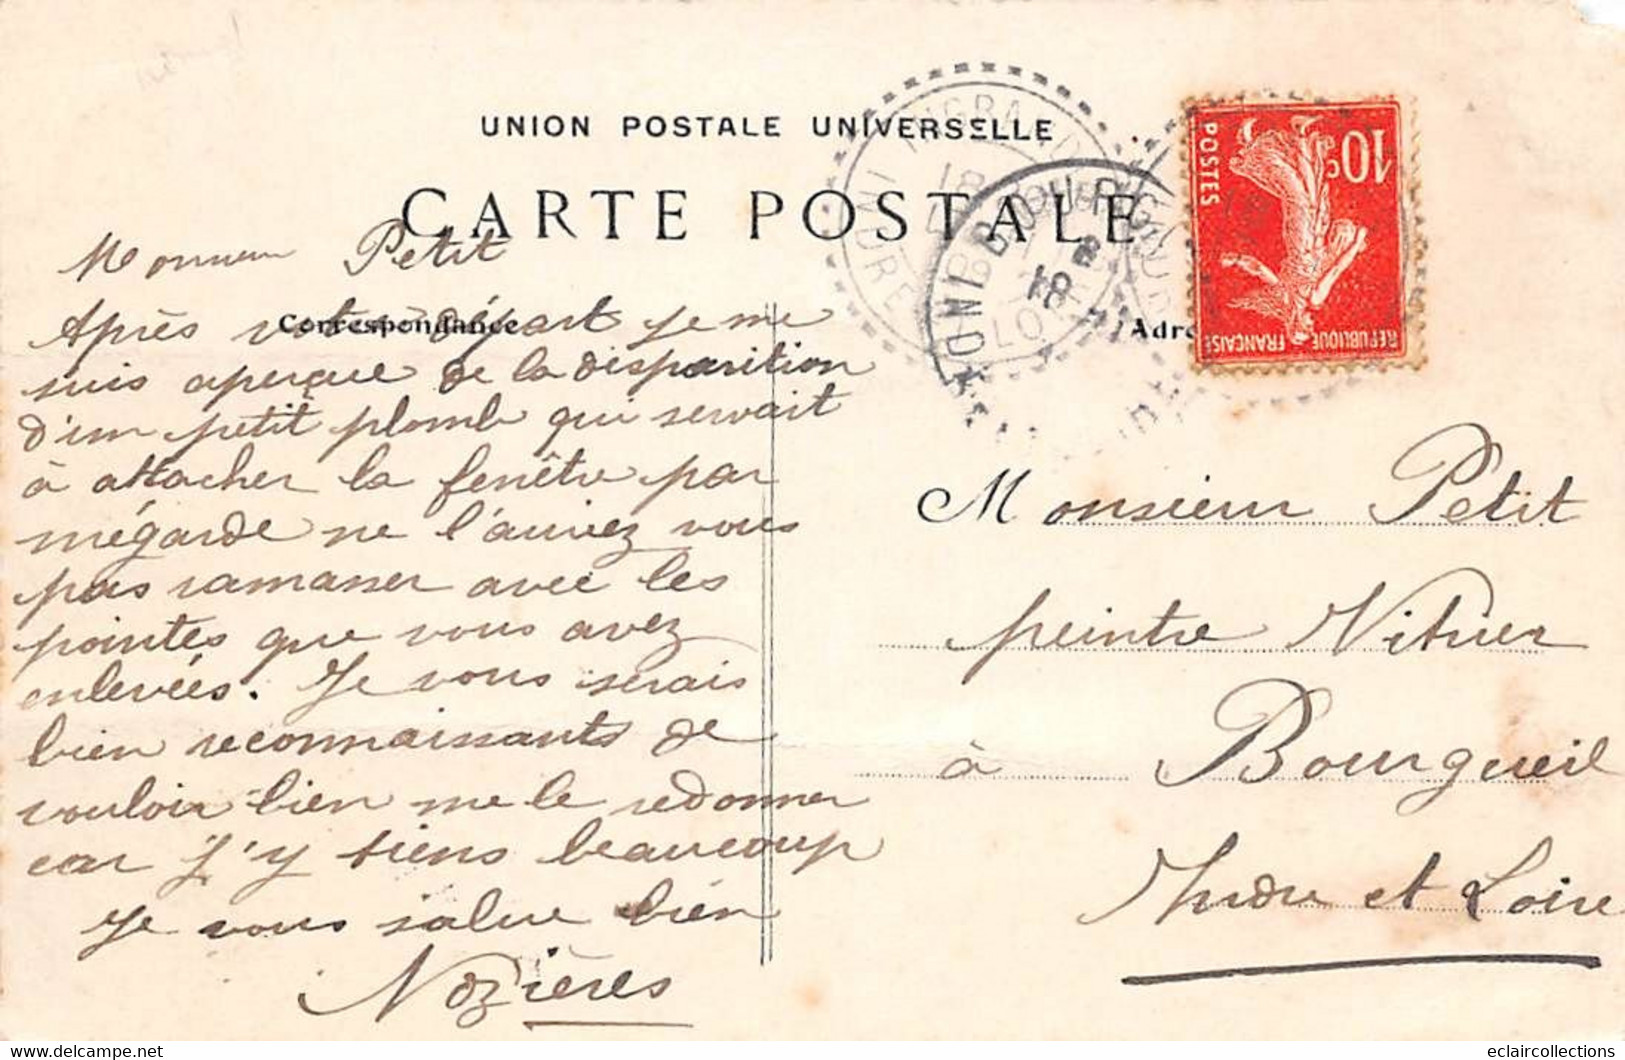 UNION POSTALE UNIVERSELLE
CARTE POSTALE
Correspondance
Monsieur Petit
Après votre départ je me
suis aperçue de la disparition
d'un petit plomb qui servait
à attacher la fenêtre par
mégarde ne l'auriez vous
pas ramasser avec les
pointes que vous avez
enlevées. Je vous serais
bien reconnaissants de
vouloir bien me le redonner
car j'y tiens beaucoup
Je vous salue bien
Nozières
INGRA
INDRE
LO
BOURGU
INDR
18
8
18 -
Adre
10c
POSTES
REPUBLIQUE FRANÇAISE
Monsieur Petit
peintre Vitrier
à Bourgueil
Indre et Loire
www.delcampe.net
eclaircollections